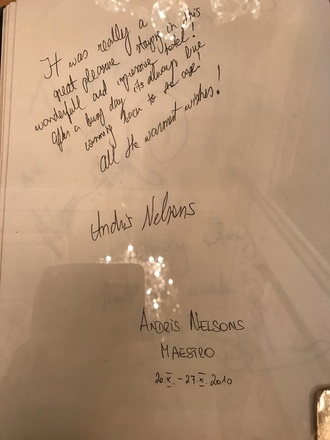 It was really a
great pleasure staying in this
wonderfull and impressive hotel!
After a busy day its always like
coming back to
All the warmest wishes!
Andris Nelsons
ANDRIS NELSONS
MAESTRO
20.X. - 27.X. 2010